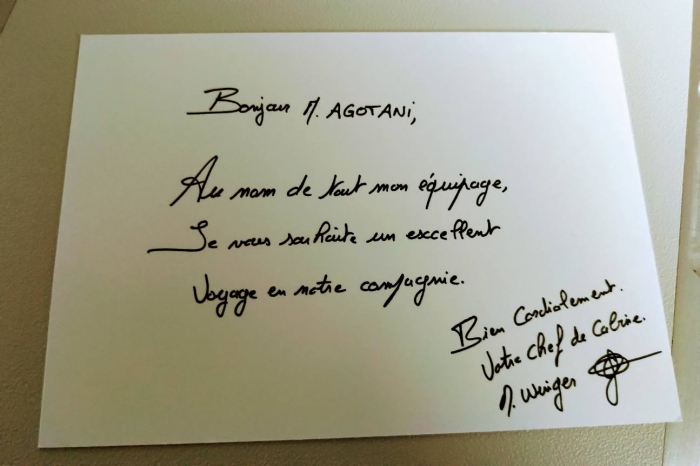 Bonjour M. AGOTANI,
Au nom de tout mon équipage,
Je vous souhaite un excellent
Voyage en notre compagnie.
Bien Cordialement.
Votre Chef de Cabine.
M. Winger